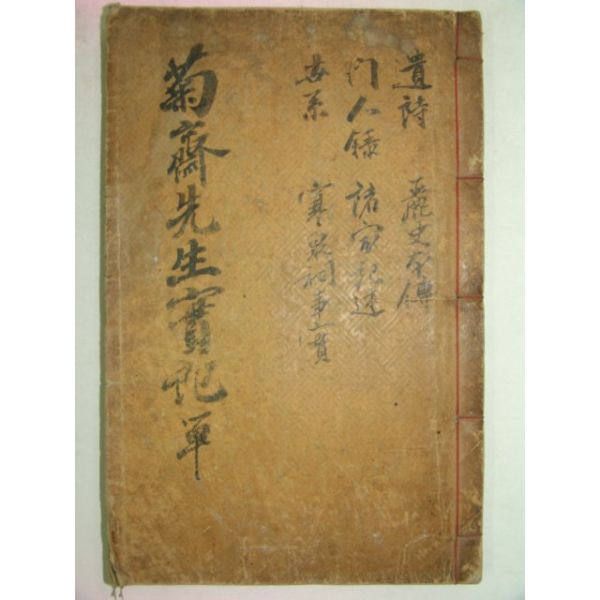 遺詩 麗史本傳
门人錄 諸家記述
世系 寒泉祠事實
菊齋先生實記 單